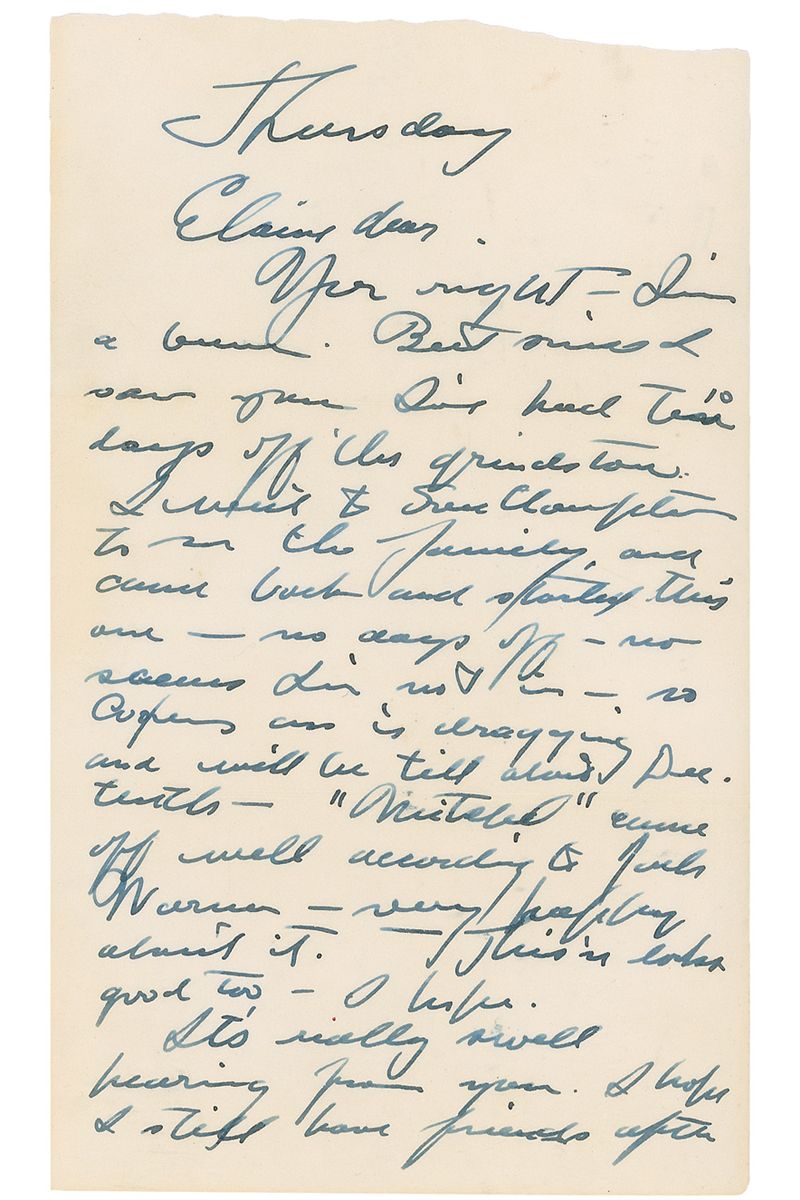 Thursday
Elaine dear.
Yer right – I'm
a bum. But since I
saw you I've had two 10
days off the grindstone.
I went to Southampton
to see the family, and
came back and started this
one – no days off – no
scenes I'm not in – so
Coopers ass is dragging
and will be till about Dec.
tenth – "Mitchel" came
off well according to Jack
Warner – very happy
about it. – This'n looks
good too – I hope.
It's really swell
hearing from you. I hope
I still have friends after